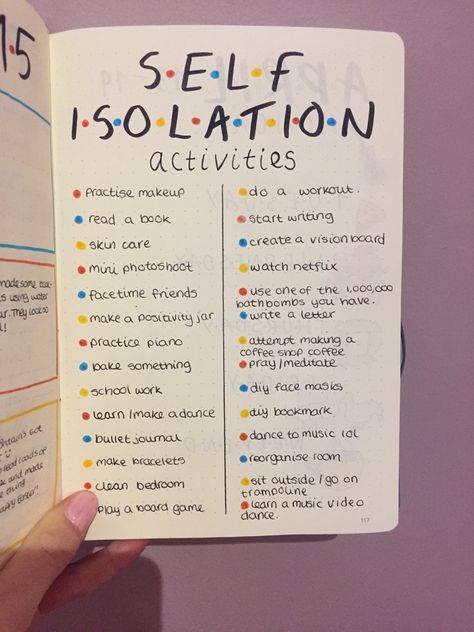 1.5
SELF
ISOLATION
activities
Practise makeup
read a book
skin care
mini photoshoot
facetime friends
make a positivity jar
practice piano
bake something
school work
learn/make a dance
bullet journal
make bracelets
clean bedroom
play a board game
do a workout.
start writing
create a vision board
watch netflix
use one of the 1,000,000
bathbombs you have.
write a letter
attempt making a
coffee shop coffee
pray/meditate
diy face masks
diy bookmark
dance to music lol
reorganise room
sit outside/go on
trampoline
learn a music video
dance.
117
made some
using water
They look so
Britain's Got
read loads of
and made
Easter!